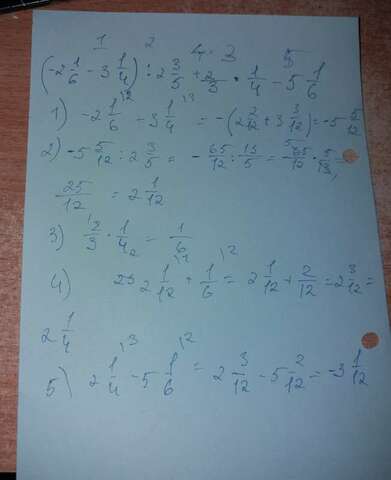 1 2 4 3 5
(-2 1/6 - 3 1/4) : 2 3/5 + 2/3 · 1/4 - 5 1/6
1) -2 1/6 - 3 1/4 = -(2 2/12 + 3 3/12) = -5 5/12
2) -5 5/12 : 2 3/5 = -65/12 : 13/5 = -65/12 · 5/13 =
25/12 = 2 1/12
3) 2/3 · 1/4 = 1/6
4) 2 1/12 + 1/6 = 2 1/12 + 2/12 = 2 3/12 =
2 1/4
5) 2 1/4 - 5 1/6 = 2 3/12 - 5 2/12 = -3 1/12